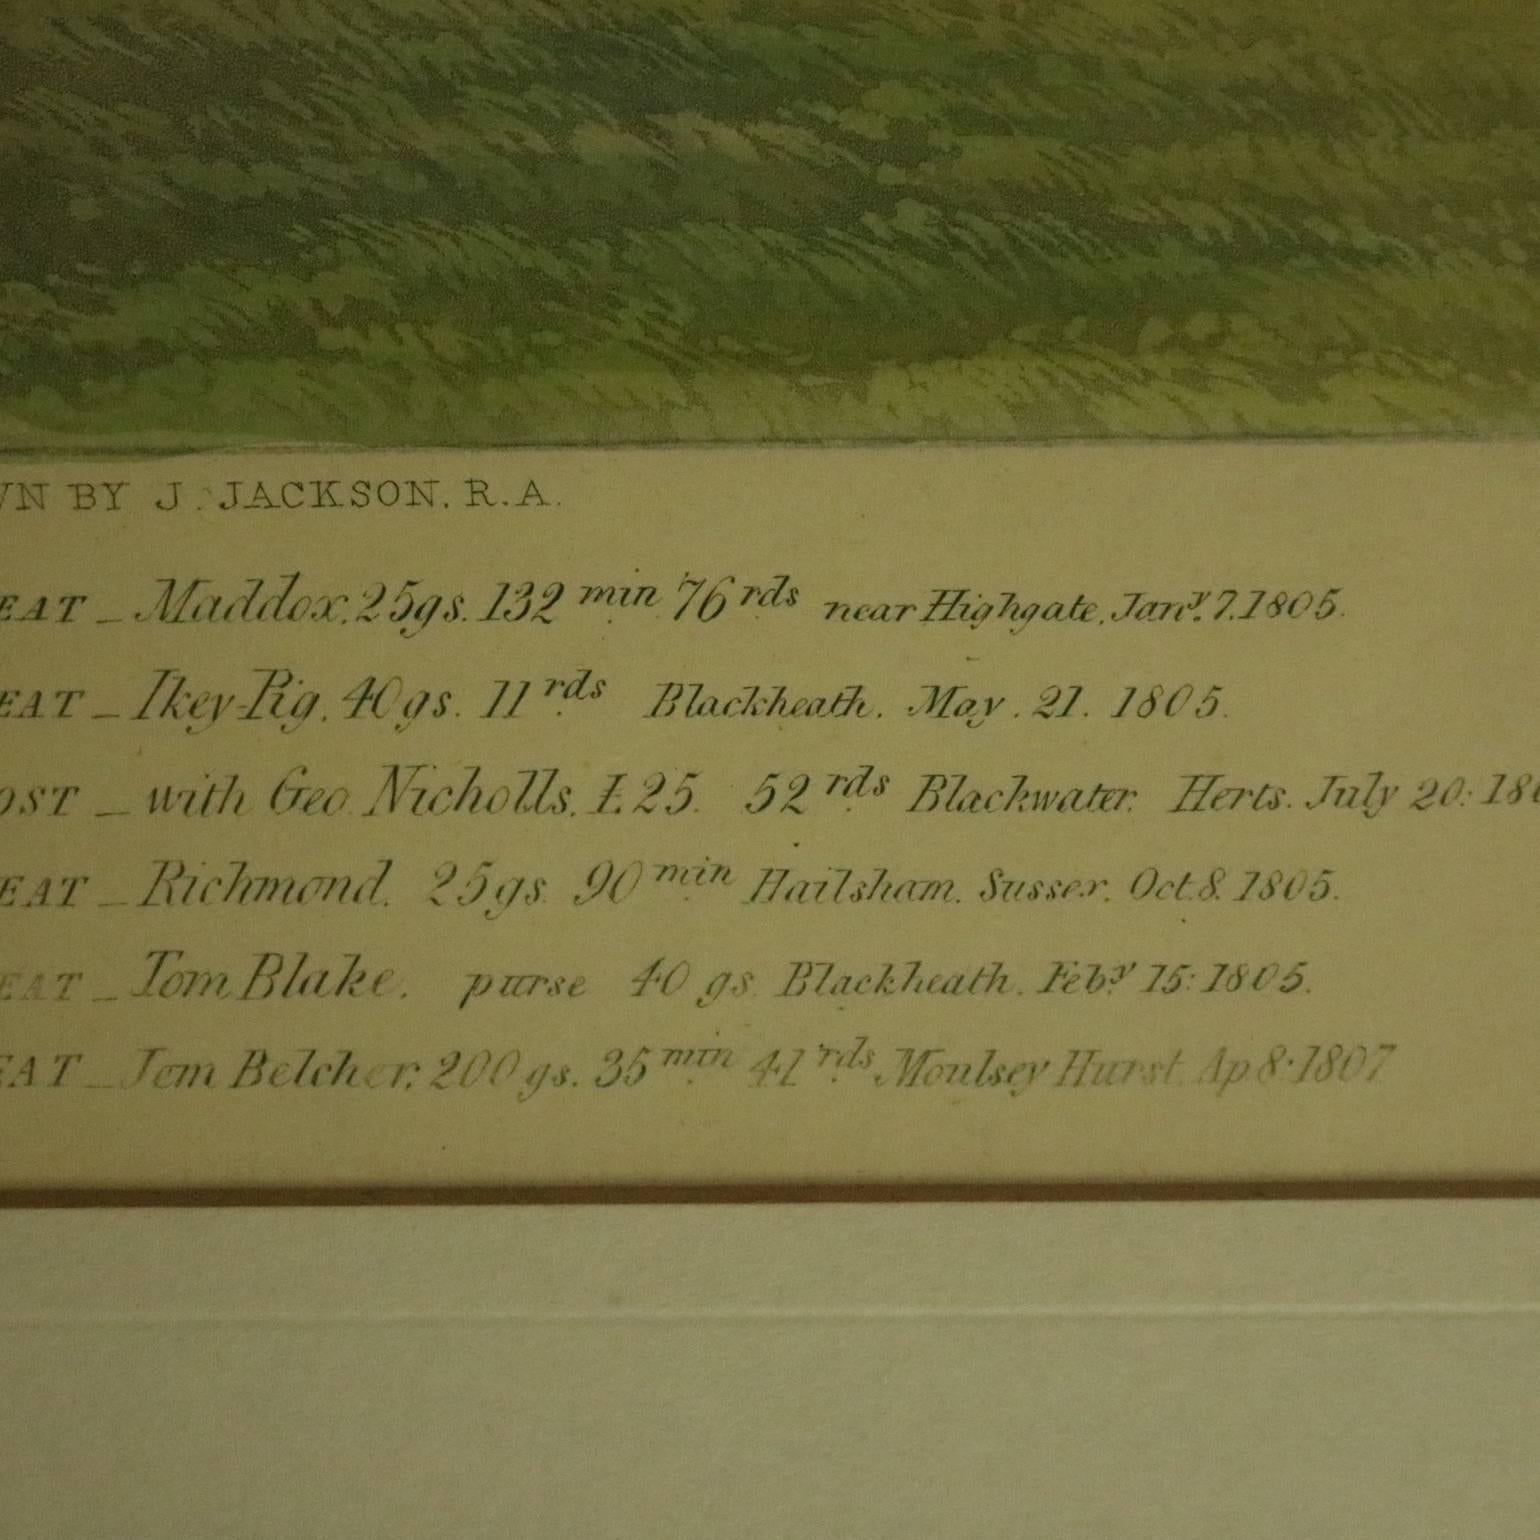 WN BY J. JACKSON. R.A.
EAT _ Maddox. 25gs. 132 min 76 rds near Highgate. Jany. 7. 1805.
EAT _ Ikey-Pig. 40gs. 11 rds Blackheath. May. 21. 1805.
OST _ with Geo. Nicholls. £25. 52 rds Blackwater. Herts. July 20: 180
EAT _ Richmond. 25gs. 90 min Hailsham. Sussex. Oct. 8. 1805.
EAT _ Tom Blake. purse 40 gs. Blackheath. Feby. 15: 1805.
EAT _ Jem Belcher. 200gs. 35 min 41 rds Moulsey Hurst. Ap 8. 1807